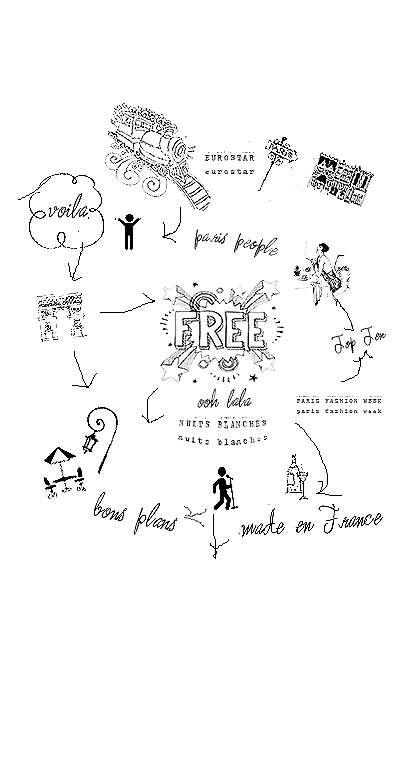 EUROSTAR
eurostar
PARIS
voila
paris people
FREE
Top Ten
ooh lala
PARIS FASHION WEEK
paris fashion week
NUITS BLANCHES
nuits blanches
bons plans
made en France